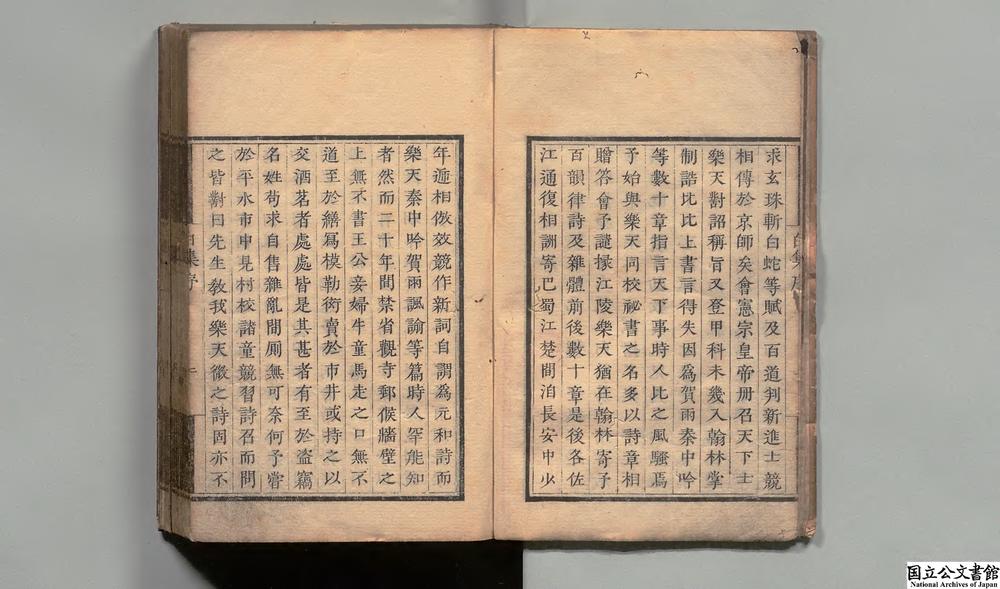 求玄珠斬白蛇等賦及百道判新進士競
相傳於京師矣會憲宗皇帝册召天下士
樂天對詔稱旨又登甲科未幾入翰林掌
制誥比比上書言得失因爲賀雨秦中吟
等數十章指言天下事時人比之風騷焉
予始與樂天同校祕書之名多以詩章相
贈答會予譴掾江陵樂天猶在翰林寄予
百韻律詩及雜體前後數十章是後各佐
江通復相詶寄巴蜀江楚間洎長安中少
年遞相倣效競作新詞自謂爲元和詩而
樂天秦中吟賀雨諷諭等篇時人罕能知
者然而二十年間禁省觀寺郵候牆壁之
上無不書王公妾婦牛童馬走之口無不
道至於繕寫模勒衒賣於市井或持之以
交酒茗者處處皆是其甚者有至於盗竊
名姓苟求自售雜亂間厠無可奈何予嘗
於平水市中見村校諸童競習詩召而問
之皆對曰先生教我樂天微之詩固亦不
白集序
國立公文書館
National Archives of Japan